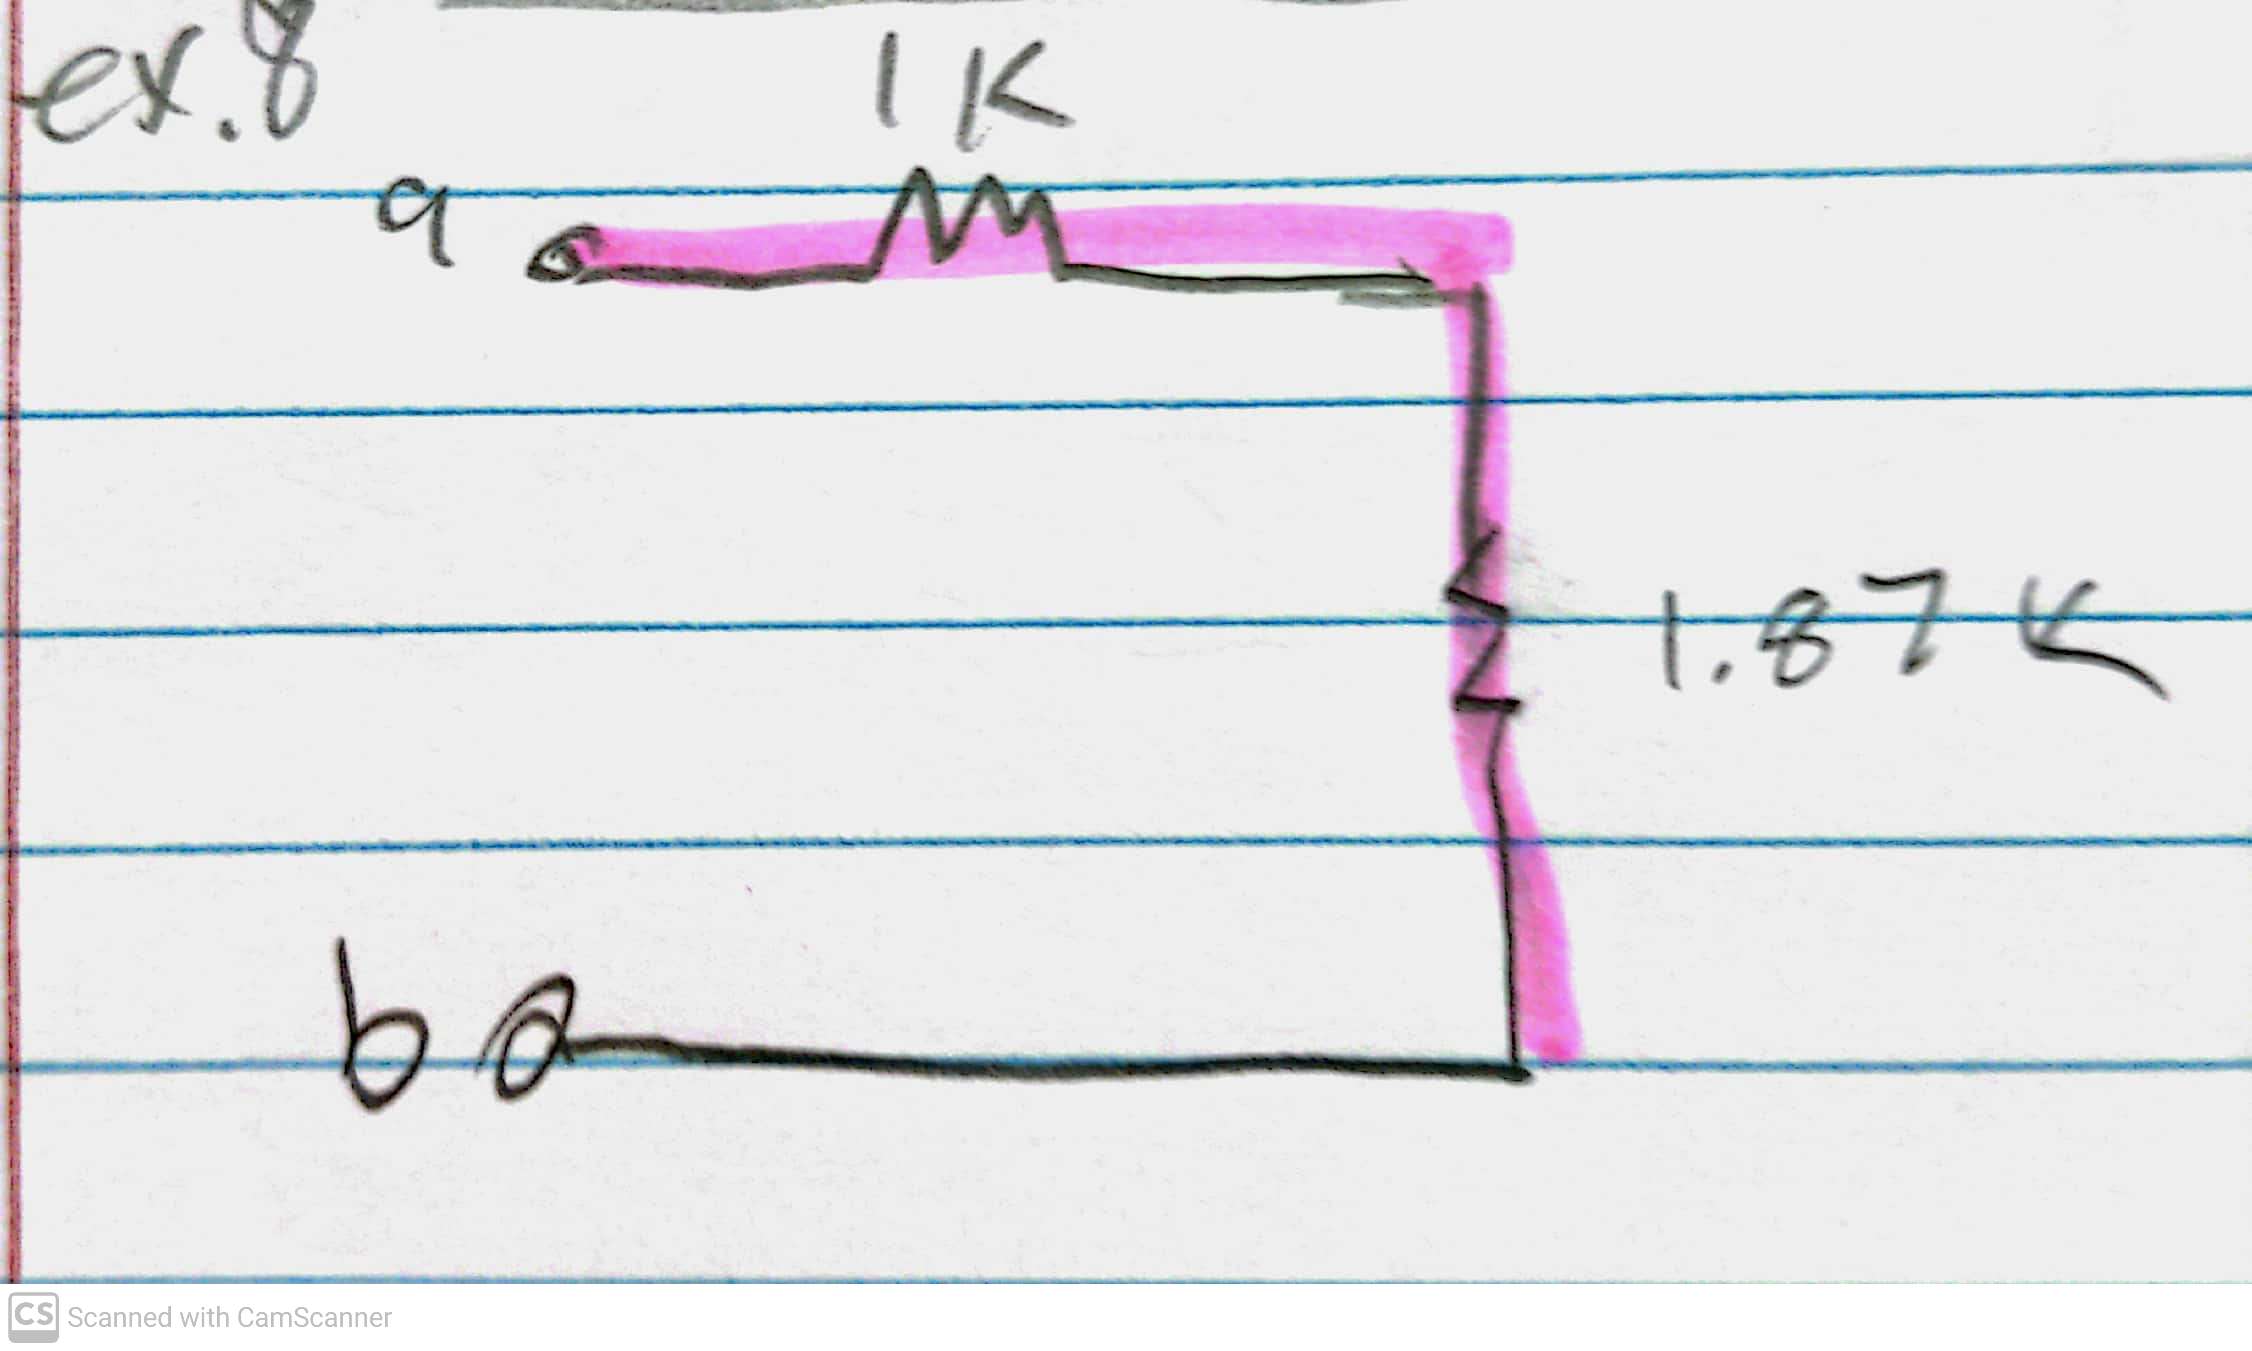 ex.8
1K
a
1.87K
b
CS Scanned with CamScanner